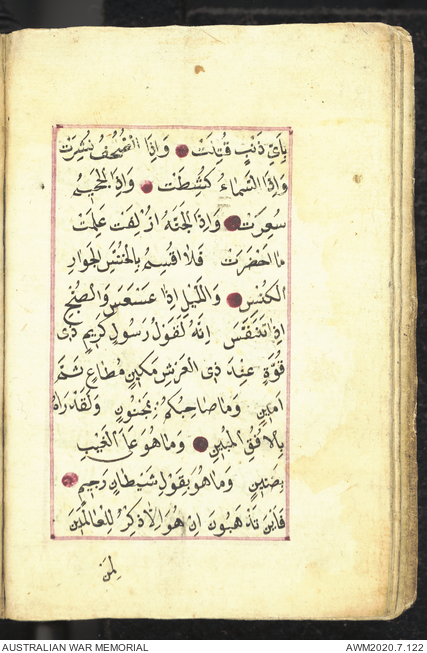 بِاَيِّ ذَنْبٍ قُتِلَتْ وَاِذَا الصُّحُفُ نُشِرَتْ
وَاِذَا السَّمَاءُ كُشِطَتْ وَاِذَا الْجَحِيمُ
سُعِرَتْ وَاِذَا الْجَنَّةُ اُزْلِفَتْ عَلِمَتْ
مَا اَحْضَرَتْ فَلَا اُقْسِمُ بِالْخُنَّسِ الْجَوَارِ
الْكُنَّسِ وَالَّليْلِ اِذَا عَسْعَسَ وَالصُّبْحِ
اِذَا تَنَفَّسَ اِنَّهُ لَقَوْلُ رَسُولٍ كَرِيمٍ ذِى
قُوَّةٍ عِنْدَ ذِى الْعَرْشِ مَكِينٍ مُطَاعٍ ثَمَّ
اَمِينٍ وَمَا صَاحِبُكُمْ بِمَجْنُونٍ وَلَقَدْ رَاٰهُ
بِالْاُفُقِ الْمُبِينِ وَمَا هُوَ عَلَى الْغَيْبِ
بِضَنِينٍ وَمَا هُوَ بِقَوْلِ شَيْطَانٍ رَجِيمٍ
فَاَيْنَ تَذْهَبُونَ اِنْ هُوَ اِلَّا ذِكْرٌ لِلْعَالَمِينَ
لِمَنْ
AUSTRALIAN WAR MEMORIAL AWM2020.7.122